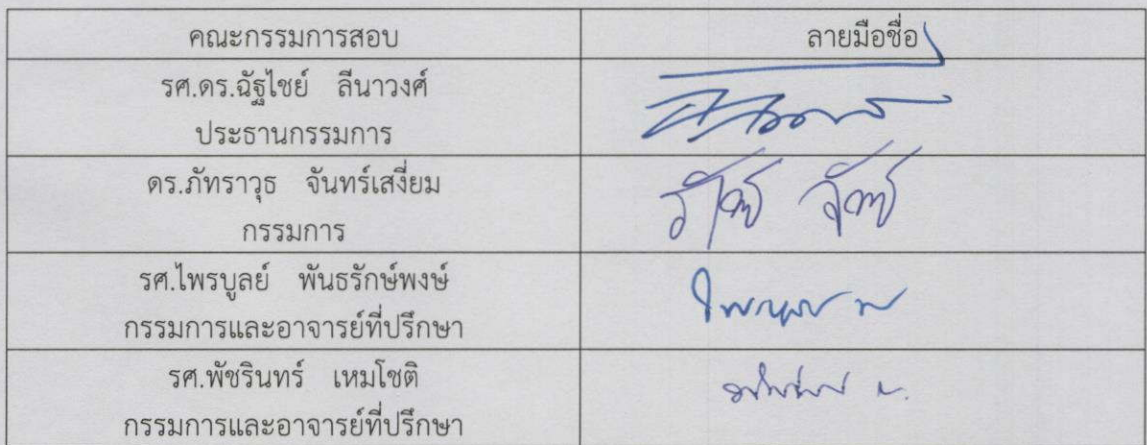 คณะกรรมการสอบ ลายมือชื่อ
รศ.ดร.ฉัฐไชย์ ลีนาวงศ์
ประธานกรรมการ
ดร.ภัทราวุธ จันทร์เสงี่ยม
กรรมการ
รศ.ไพรบูลย์ พันธรักษ์พงษ์
กรรมการและอาจารย์ที่ปรึกษา
รศ.พัชรินทร์ เหมโชติ
กรรมการและอาจารย์ที่ปรึกษา